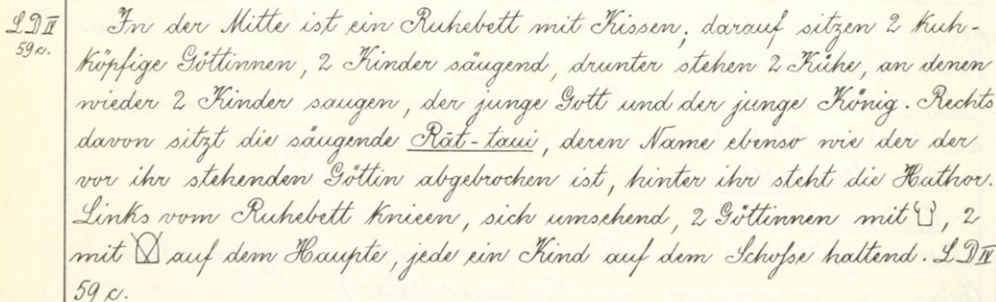 LD IV
59 c.
In der Mitte ist ein Ruhebett mit Kissen; darauf sitzen 2 kuh-
köpfige Göttinnen, 2 Kinder säugend, drunter stehen 2 Kühe, an denen
wieder 2 Kinder saugen, der junge Gott und der junge König. Rechts
davon sitzt die säugende Rāt-taui, deren Name ebenso wie der der
vor ihr stehenden Göttin abgebrochen ist, hinter ihr steht die Hathor.
Links vom Ruhebett knieen, sich umsehend, 2 Göttinnen mit , 2
mit auf dem Haupte, jede ein Kind auf dem Schoße haltend. LD IV
59 c.